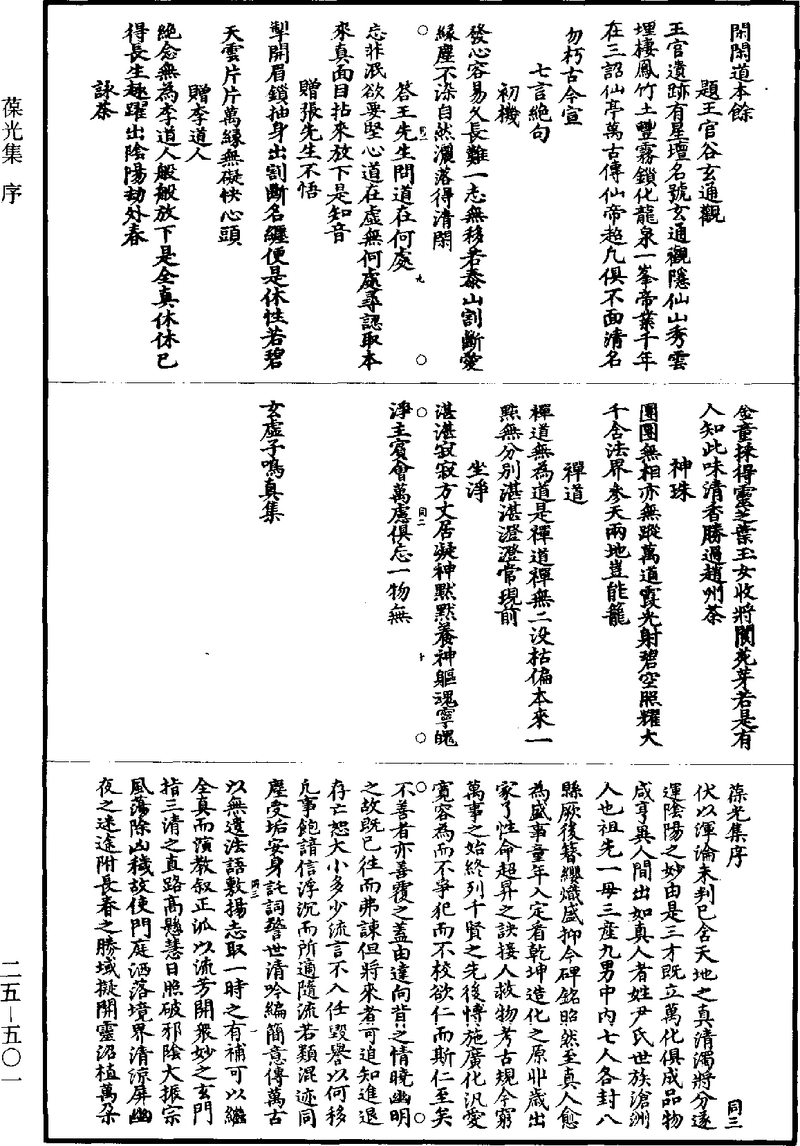 閑閑道本餘
題王官谷玄通觀
王官遺跡有星壇名號玄通觀隱仙山秀雲
埋棲鳳竹土豐霧鎖化龍泉一峯帝業千年
在三詔仙亭萬古傳仙帝超凡俱不面清名
勿朽古今宣
七言絶句
初機
發心容易久長難一志無移若泰山割斷愛
緣塵不染自然灑落得清閑
荅王先生問道在何處
忘非泯欲要堅心道在虛無何處尋認取本
來真面目拈來放下是知音
贈張先生不悟
掣開眉鎖抽身出割斷名韁便是休性若碧
天雲片片萬緣無礙快心頭
贈李道人
絶念無為李道人般般放下是全真休休已
得長生趣躍出陰陽劫外春
詠茶
金童採得靈芝葉玉女收將閬苑芽若是有
人知此味清香勝過趙州茶
神珠
團團無相亦無蹤萬道霞光射碧空照耀大
千含法界參天兩地豈能籠
禪道
禪道無為道是禪道禪無二没枯偏本來一
㸃無分別湛湛澄澄常現前
坐淨
湛湛寂寂方丈居凝神默默養神軀魂寧魄
淨主賓會萬慮俱忘一物無
玄虛子鳴真集
葆光集序
同三
伏以渾淪未判已含天地之真清濁將分遂
運陰陽之妙由是三才既立萬化俱成品物
咸亨異人間出如真人者姓尹氏世族滄洲
人也祖先一母三産九男中内七人各封八
縣厥後簪纓熾盛抑今碑銘昭然至真人愈
為盛事童年入定看乾坤造化之原丱歳出
家了性命超昇之訣接人救物考古規今窮
萬事之始終列千賢之先後博施廣化汎愛
寬容為而不爭犯而不校欲仁而斯仁至矣
不善者亦善覆之蓋由達向背之情曉幽明
之故既已往而弗諫但將來者可追知進退
存亡恕大小多少流言不入任毁譽以何移
凡事飽諳信浮沉而所適隨流若類混迹同
塵受垢安身託詞警世清吟編簡意傳萬古
以無遺法語敷揚志取一時之有補可以繼
全真而演教叙正派以流芳開衆妙之玄門
指三清之直路高懸慧日照破邪陰大振宗
風蕩除山穢故使門庭洒落境界清涼屏幽
夜之迷途附長春之勝域擬開靈沼植萬朶
葆光集 序
二五—五〇一